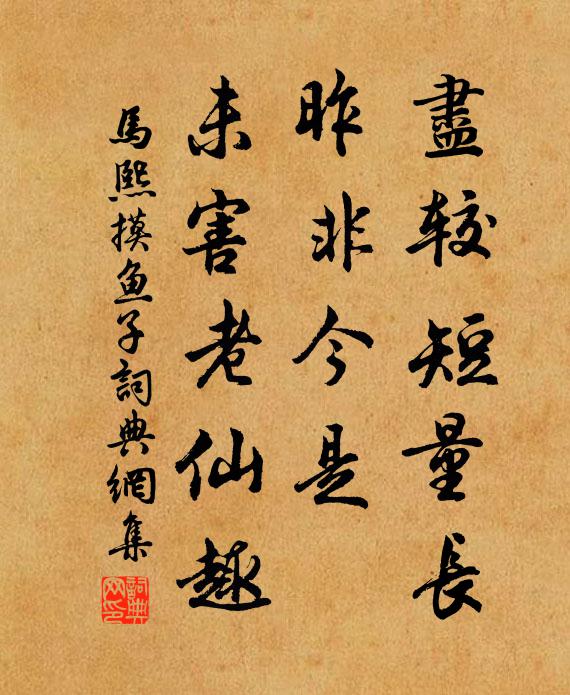 盡較短量長
昨非今是
未害老仙趣
馬熙摸魚子詞典網集
詞典网印